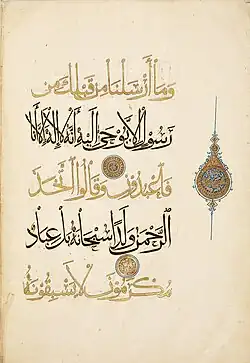 وَمَا أَرْسَلْنَا مِن قَبْلِكَ مِن
رَسُولٍ إِلَّا يُوحَى إِلَيْهِ أَنَّهُ لَا إِلَهَ إِلَّا أَنَا
فَاعْبُدُونِ وَقَالُوا اتَّخَذَ
الرَّحْمَنُ وَلَدًا سُبْحَانَهُ بَلْ عِبَادٌ
مُكْرَمُونَ لَا يَسْبِقُونَهُ